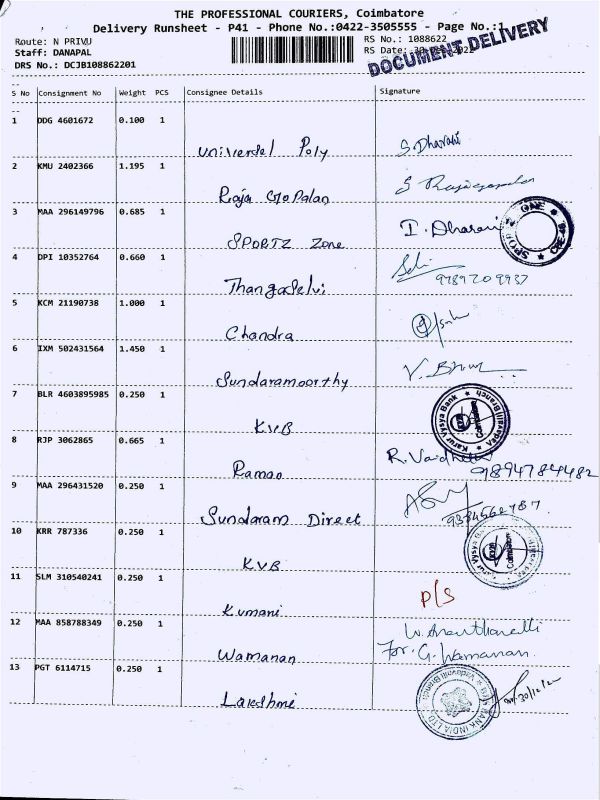 THE PROFESSIONAL COURIERS, Coimbatore
Delivery Runsheet - P41 - Phone No.:0422-3505555 - Page No.:1
Route: N PRIVU
RS No.: 1088622
Staff: DANAPAL
RS Date: 30-Dec-2022
DRS No.: DCJB108862201
DOCUMENT DELIVERY
S No Consignment No Weight PCS Consignee Details Signature
1 DDG 4601672 0.100 1
Universel Poly S. Dharani
2 KMU 2402366 1.195 1
Raja Gopalan
3 MAA 296149796 0.685 1
SPORTZ Zone I. Dharani
4 DPI 10352764 0.660 1
Thangaselvi Selvi
9789209937
5 KCM 21190738 1.000 1
Chandra
6 IXM 502431564 1.450 1
Sundaramoorthy
7 BLR 4603895985 0.250 1
K.V.B
Karur Vysya Bank
8 RJP 3062865 0.665 1
Raman
9894784482
9 MAA 296431520 0.250 1
Sundaram Direct
10 KRR 787336 0.250 1
K.V.B
Coimbatore
11 SLM 310540241 0.250 1
Kumani P/S
12 MAA 858788349 0.250 1
Wamanan
For. G. Wamanan.
13 PGT 6114715 0.250 1
Lakshmi
30/12/22